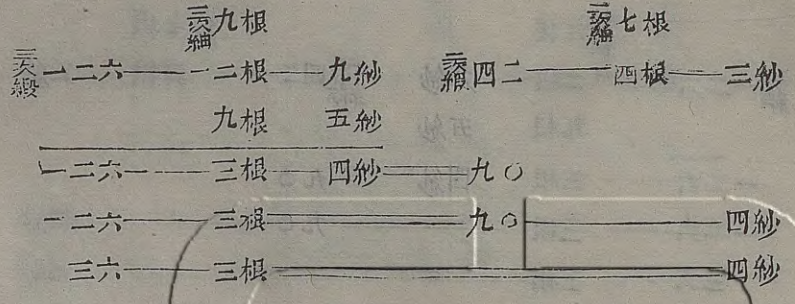 三次紬九根 七根
三次緞一二六——一二根——九紗 四二——四根——三紗
九根 五紗
一二六——三根——四紗══九〇
一二六——三根══九〇——四紗
三六——三根══四紗